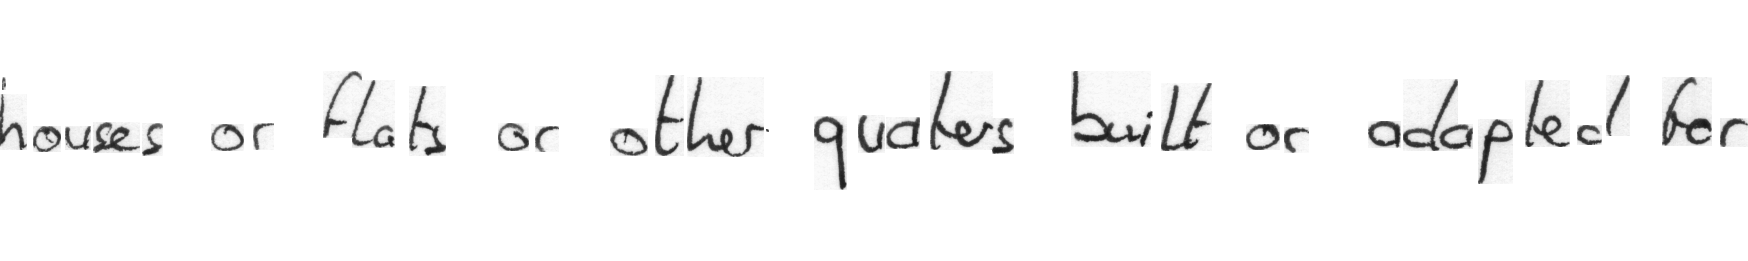 houses or flats or other quaters built or adapted for